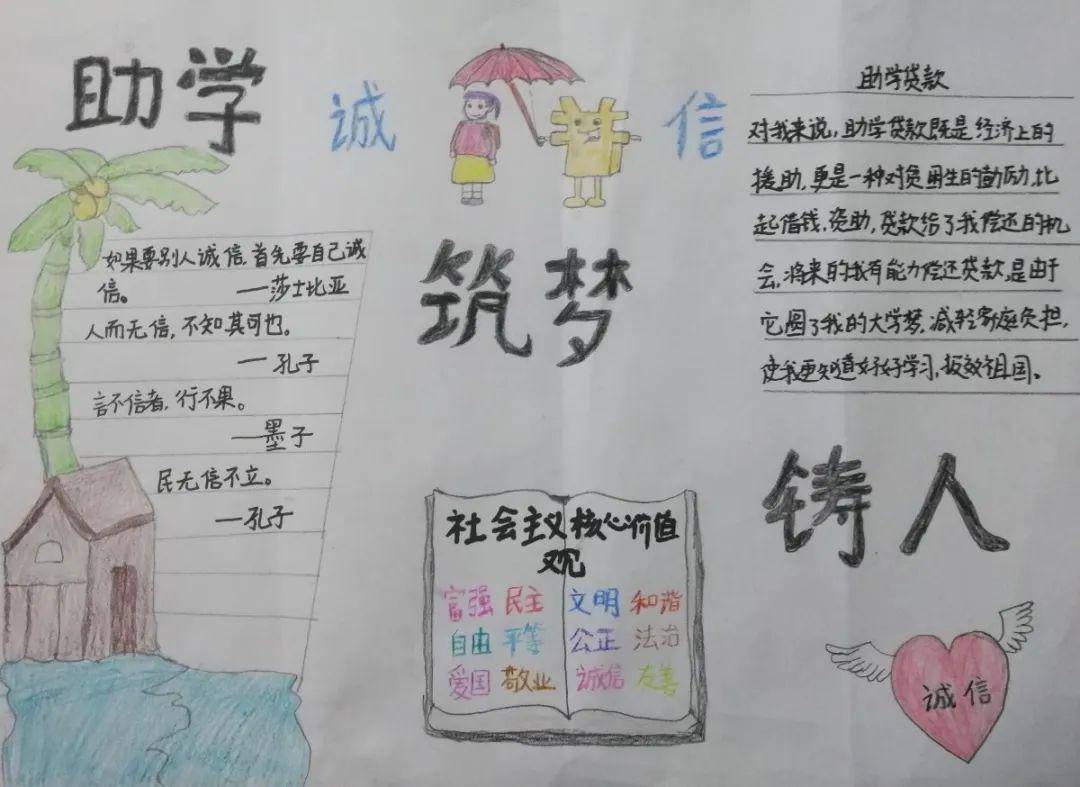 助学
诚 信
筑梦
铸人
如果要别人诚信,首先要自己诚
信。 —莎士比亚
人而无信,不知其可也。
—孔子
言不信者,行不果。
—墨子
民无信不立。
—孔子
助学贷款
对我来说,助学贷款既是经济上的
援助,更是一种对贫困生的勋励,比
起借钱,资助,贷款给了我偿还的机
会,将来的我有能力偿还贷款,是由于
它圆了我的大学梦,减轻家庭负担,
使我更知道好好学习,报效祖国。
社会主义核心价值
观
富强 民主 文明 和谐
自由 平等 公正 法治
爱国 敬业 诚信 友善
诚信